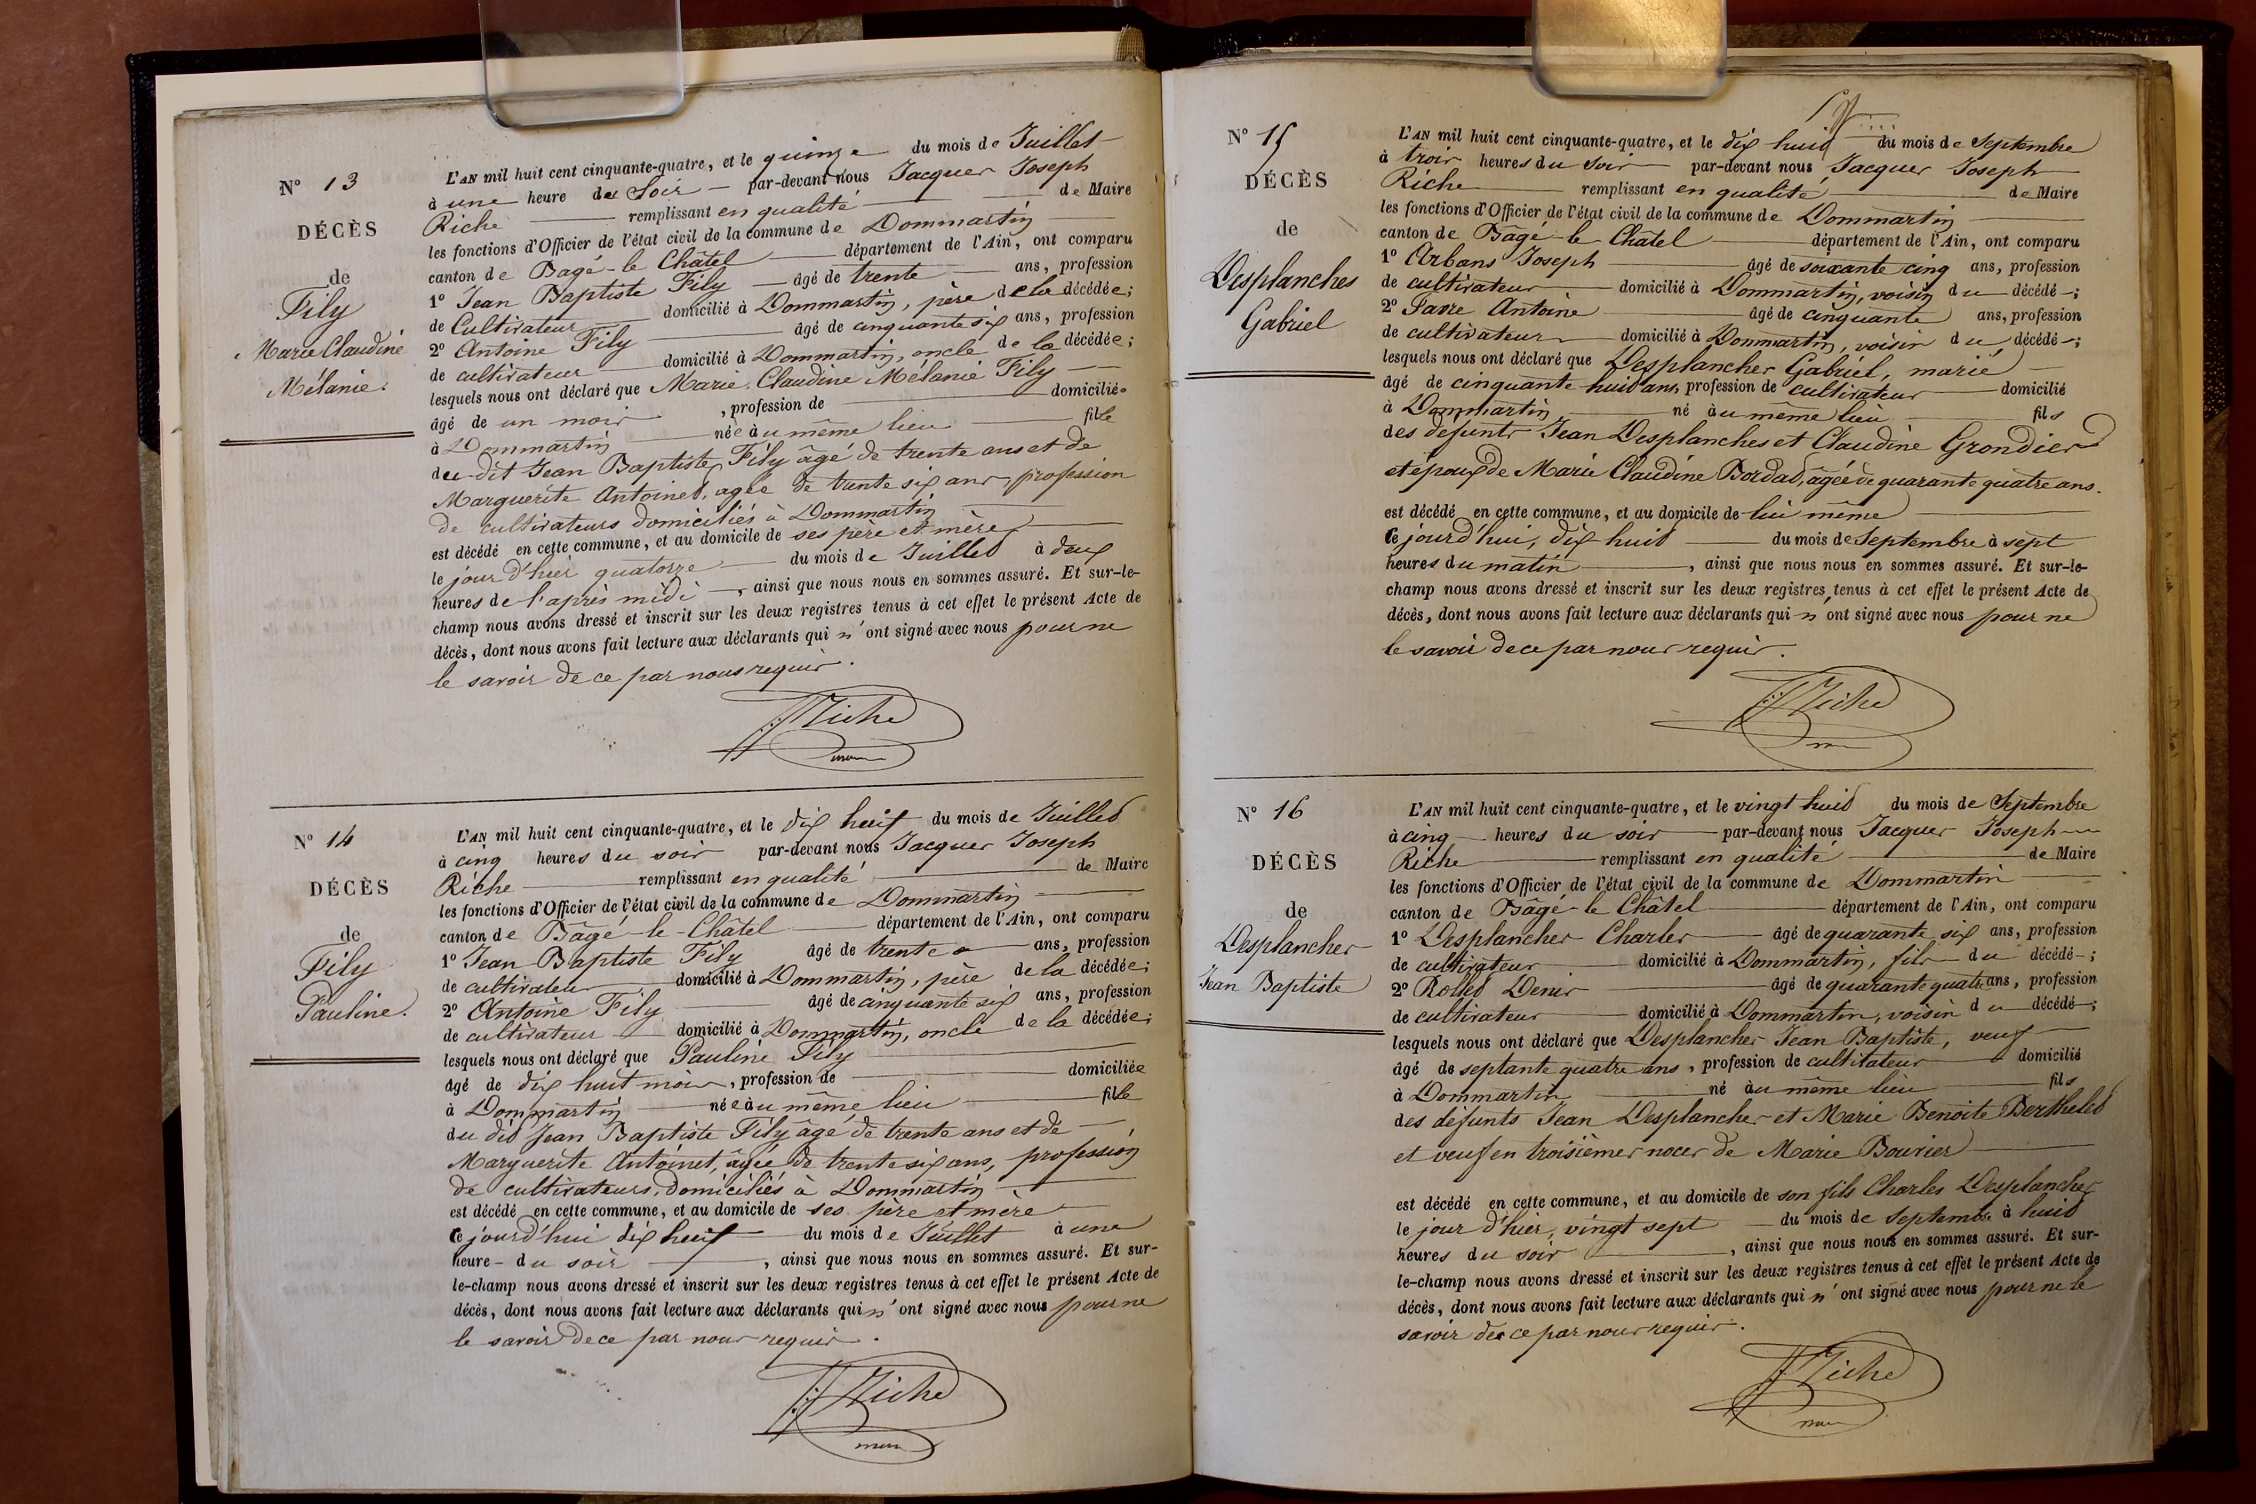 N° 13
DÉCÈS
de
Fily
Marie Claudine
Mélanie.
L'AN mil huit cent cinquante-quatre, et le quinze du mois de Juillet
à une heure du Soir par-devant nous Jacques Joseph
Riche remplissant en qualité de Maire
les fonctions d'Officier de l'état civil de la commune de Dommartin
canton de Bagé-le Châtel département de l'Ain, ont comparu
1° Jean Baptiste Fily âgé de trente ans, profession
de Cultivateur domicilié à Dommartin, père de la décédée;
2° Antoine Fily âgé de cinquante six ans, profession
de cultivateur domicilié à Dommartin, oncle de la décédée;
lesquels nous ont déclaré que Marie Claudine Mélanie Fily
âgé de un mois, profession de domicilié
à Dommartin née au même lieu fille
du dit Jean Baptiste Fily âgé de trente ans et de
Marguerite Antoinet, agée de trente six ans, profession
de cultivateurs domiciliés à Dommartin
est décédé en cette commune, et au domicile de ses père et mère
le jour d'hier quatorze du mois de Juillet à deux
heures de l'après midi, ainsi que nous nous en sommes assuré. Et sur-le-
champ nous avons dressé et inscrit sur les deux registres tenus à cet effet le présent Acte de
décès, dont nous avons fait lecture aux déclarants qui n'ont signé avec nous pour ne
le savoir de ce par nous requis.
Riche
N° 14
DÉCÈS
de
Fily
Pauline.
L'AN mil huit cent cinquante-quatre, et le dix neuf du mois de Juillet
à cinq heures du soir par-devant nous Jacques Joseph
Riche remplissant en qualité de Maire
les fonctions d'Officier de l'état civil de la commune de Dommartin
canton de Bâgé-le-Châtel département de l'Ain, ont comparu
1° Jean Baptiste Fily âgé de trente ans, profession
de cultivateur domicilié à Dommartin, père de la décédée;
2° Antoine Fily âgé de cinquante six ans, profession
de cultivateur domicilié à Dommartin, oncle de la décédée;
lesquels nous ont déclaré que Pauline Fily
âgé de dix huit mois, profession de domiciliée
à Dommartin née au même lieu fille
du dit Jean Baptiste Fily âgé de trente ans et de
Marguerite Antoinet, âgée de trente six ans, profession
de cultivateurs, domiciliés à Dommartin
est décédé en cette commune, et au domicile de ses père et mère
ce jourd'hui dix neuf du mois de Juillet à une
heure du soir, ainsi que nous nous en sommes assuré. Et sur-
le-champ nous avons dressé et inscrit sur les deux registres tenus à cet effet le présent Acte de
décès, dont nous avons fait lecture aux déclarants qui n'ont signé avec nous pour ne
le savoir de ce par nous requis.
Riche
N° 15
DÉCÈS
de
Desplanches
Gabriel
L'AN mil huit cent cinquante-quatre, et le dix huit du mois de Septembre
à trois heures du Soir par-devant nous Jacques Joseph
Riche remplissant en qualité de Maire
les fonctions d'Officier de l'état civil de la commune de Dommartin
canton de Bâgé-le Châtel département de l'Ain, ont comparu
1° Arbans Joseph âgé de soixante cinq ans, profession
de cultivateur domicilié à Dommartin, voisin du décédé;
2° Favre Antoine âgé de cinquante ans, profession
de cultivateur domicilié à Dommartin, voisin du décédé;
lesquels nous ont déclaré que Desplanches Gabriel, marié
âgé de cinquante huit ans, profession de cultivateur domicilié
à Dommartin, né au même lieu fils
des défunts Jean Desplanches et Claudine Grondier
et époux de Marie Claudine Bordat, âgée de quarante quatre ans.
est décédé en cette commune, et au domicile de lui même
ce jourd'hui, dix huit du mois de Septembre à sept
heures du matin, ainsi que nous nous en sommes assuré. Et sur-le-
champ nous avons dressé et inscrit sur les deux registres tenus à cet effet le présent Acte de
décès, dont nous avons fait lecture aux déclarants qui n'ont signé avec nous pour ne
le savoir de ce par nous requis.
Riche
N° 16
DÉCÈS
de
Desplanches
Jean Baptiste
L'AN mil huit cent cinquante-quatre, et le vingt huit du mois de Septembre
à cinq heures du soir par-devant nous Jacques Joseph
Riche remplissant en qualité de Maire
les fonctions d'Officier de l'état civil de la commune de Dommartin
canton de Bâgé-le Châtel département de l'Ain, ont comparu
1° Desplanches Charles âgé de quarante six ans, profession
de cultivateur domicilié à Dommartin, fils du décédé;
2° Rollet Denis âgé de quarante quatre ans, profession
de cultivateur domicilié à Dommartin, voisin du décédé;
lesquels nous ont déclaré que Desplanches Jean Baptiste, veuf
âgé de septante quatre ans, profession de cultivateur domicilié
à Dommartin né au même lieu fils
des défunts Jean Desplanches et Marie Benoite Berthelet
et veuf en troisièmes noces de Marie Bouvier
est décédé en cette commune, et au domicile de son fils Charles Desplanches
le jour d'hier, vingt sept du mois de Septembre à huit
heures du soir, ainsi que nous nous en sommes assuré. Et sur-
le-champ nous avons dressé et inscrit sur les deux registres tenus à cet effet le présent Acte de
décès, dont nous avons fait lecture aux déclarants qui n'ont signé avec nous pour ne le
savoir de ce par nous requis.
Riche